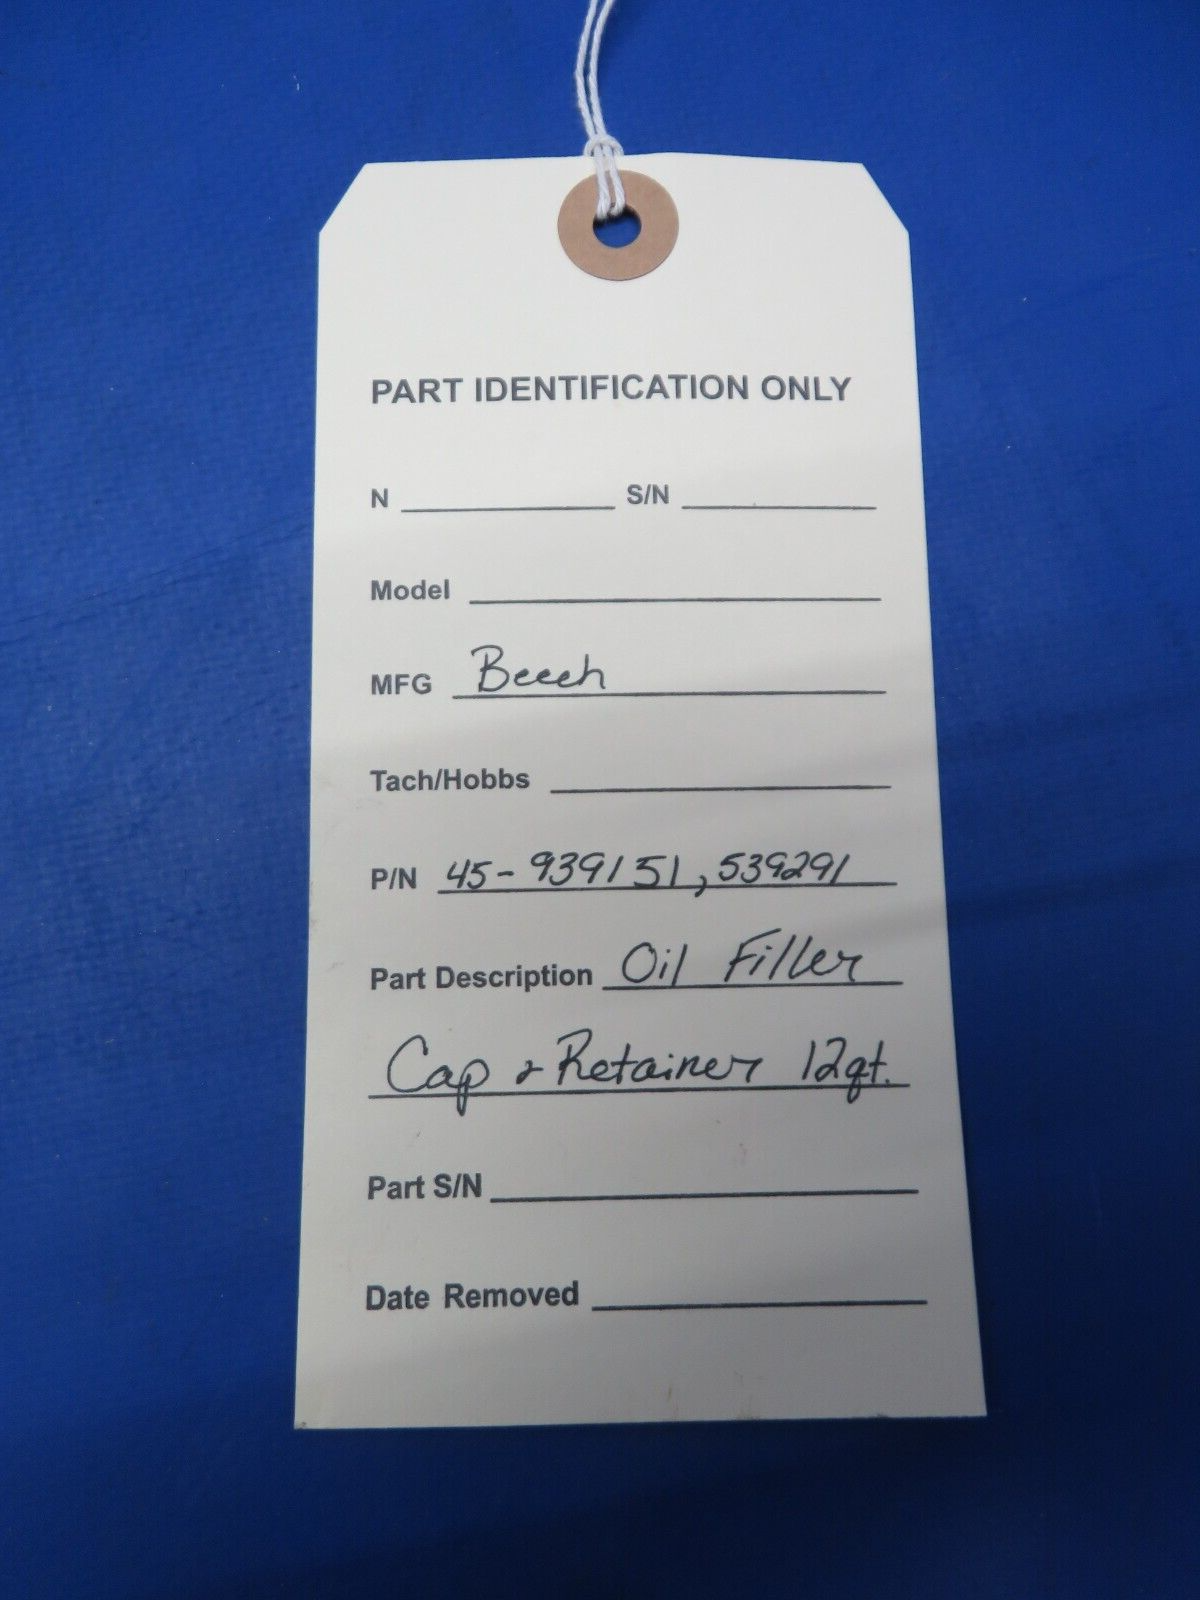 PART IDENTIFICATION ONLY
N S/N
Model
MFG Beech
Tach/Hobbs
P/N 45-939151, 539291
Part Description Oil Filler
Cap & Retainer 12qt.
Part S/N
Date Removed